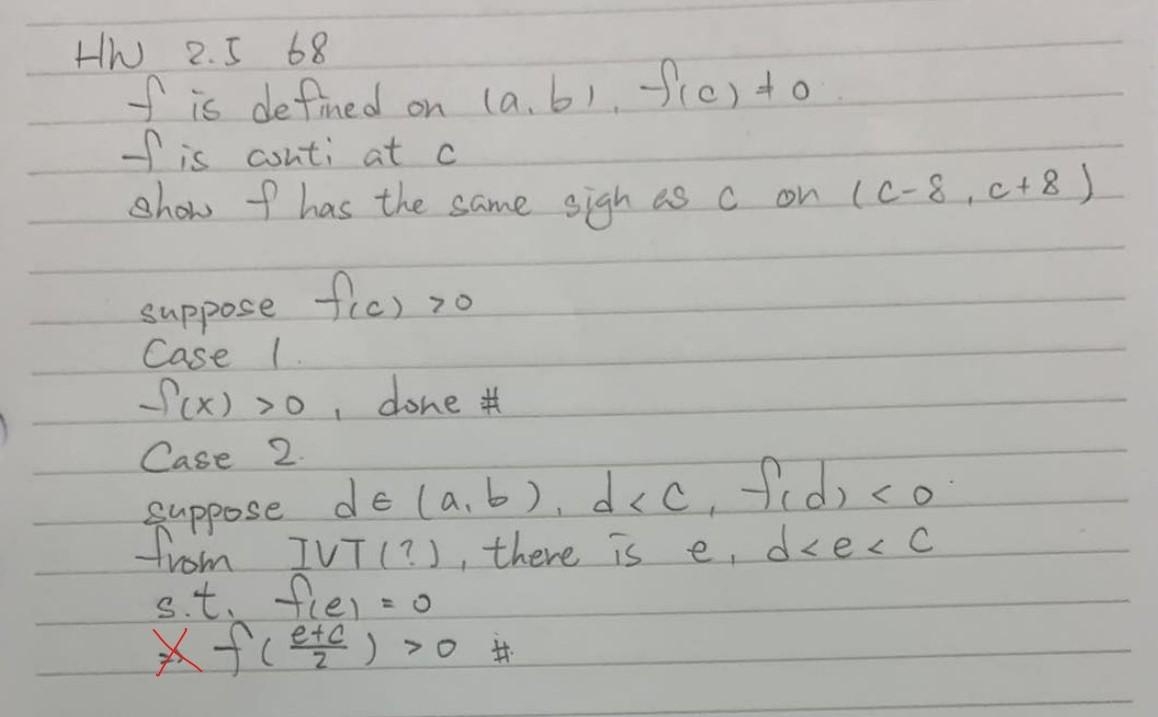 HW 2.5 68
f is defined on (a,b), f(c) ≠ 0.
f is conti at c
show f has the same sigh as c on (c-δ, c+δ)
suppose f(c) > 0
Case 1.
f(x) > 0, done #
Case 2.
suppose d ∈ (a,b), d < c, f(d) < 0
from IVT(?), there is e, d < e < c
s.t. f(e) = 0
⇒ f((e+c)/2) > 0 #